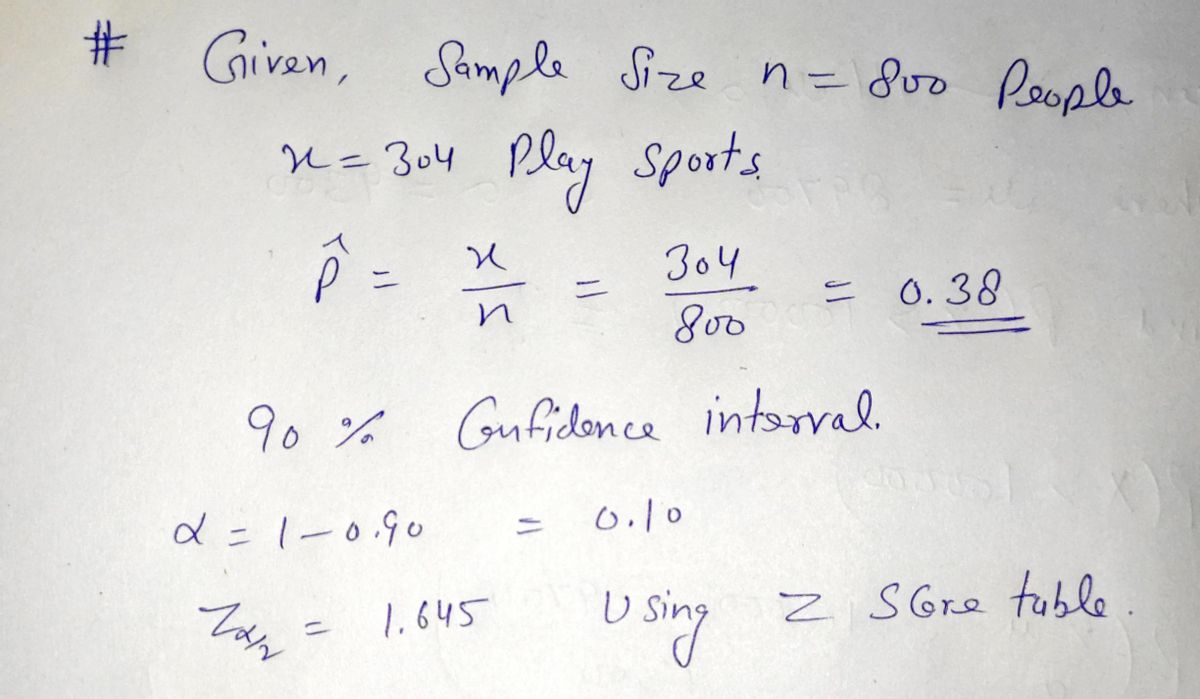 # Given, Sample Size n = 800 People
x = 304 Play Sports.
p̂ = x/n = 304/800 = 0.38
90 % Confidence interval.
α = 1 - 0.90 = 0.10
Zα/2 = 1.645 Using Z SCore table.